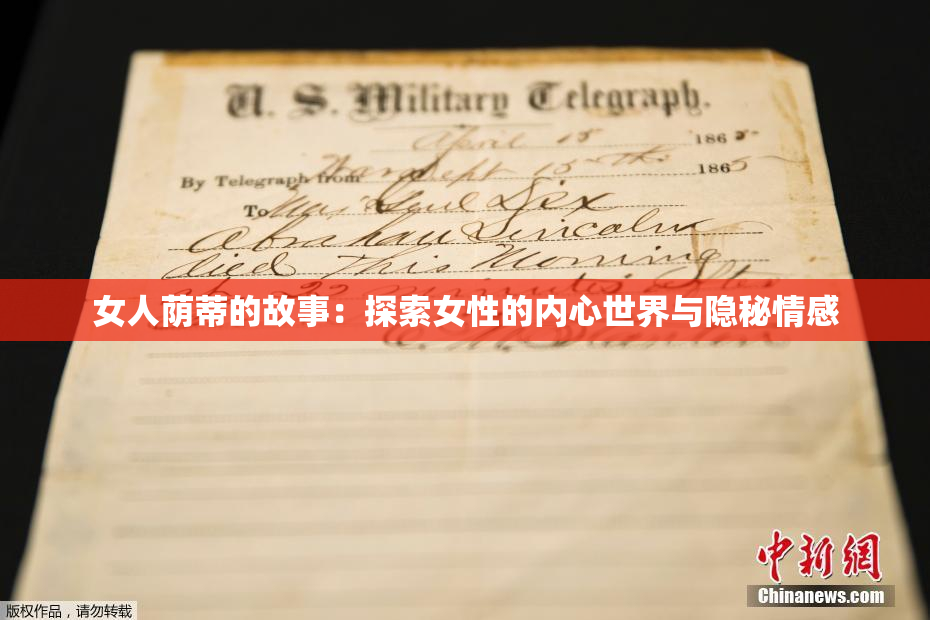 U. S. Military Telegraph.
April 15 1865
By Telegraph from War Dept 15th 1865
To Maj Genl Dix
Abraham Lincoln
died This Morning
at 22 minutes after
女人荫蒂的故事：探索女性的内心世界与隐秘情感
中新网
Chinanews.com
版权作品，请勿转载